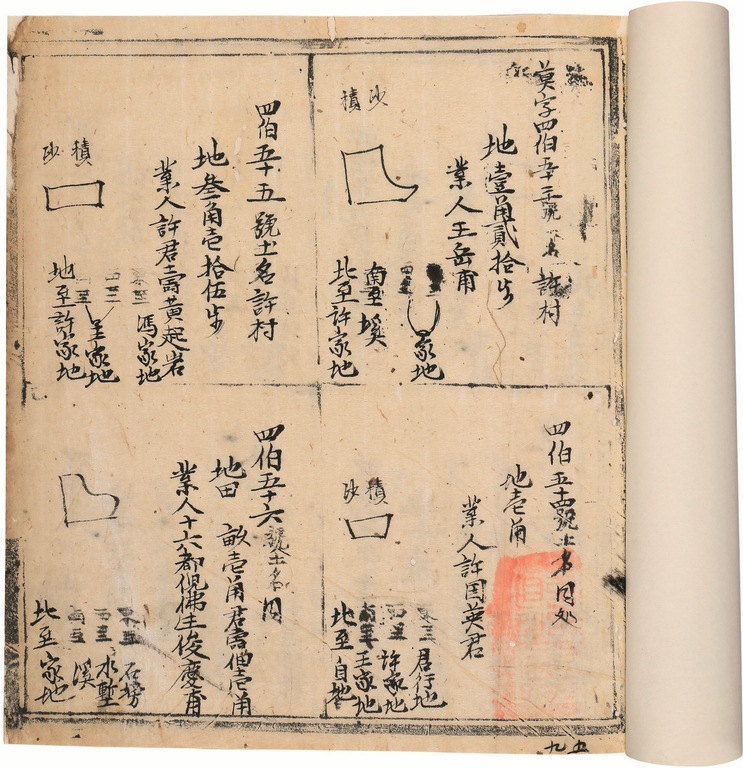 莫字四伯五十三號土名許村
地壹角貳拾步
業人王岳甫
沙積
家地
南至塝
北至許家地
四伯五十四號土名同处
地壹角
業人許国英君
積沙
東至君行地
西至許家地
南至王家地
北至自地
四伯五十五號土名許村
地叁角壱拾伍步
業人許君壽黄起岩
積沙
東至馮家地
王家地
地至許家地
四伯五十六號土名同
地田 畝壹角君壽伸壱角
業人十六都倪佛生俊慶甫
東至石塝
西至水塹
南至溪
北至家地
五九